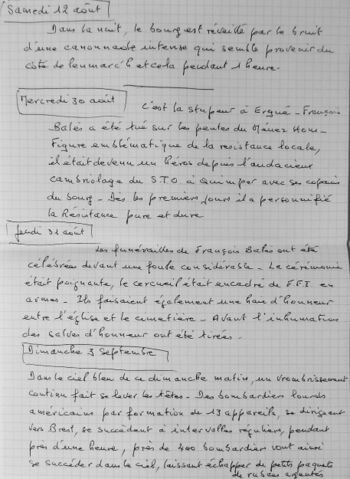 Samedi 12 août
Dans la nuit, le bourg est réveillé par le bruit
d'une canonnade intense qui semble provenir du
côté de Penmarc'h et cela pendant 1 heure.
Mercredi 30 août
C'est la stupeur à Ergué-François
Balès a été tué sur les pentes du Ménez Hom-
Figure emblématique de la resistance locale,
il était devenu un héros depuis l'audacieux
cambriolage du STO à Quimper avec ses copains
du bourg - Dès les premiers jours il a personnifié
la Résistance pure et dure
Jeudi 31 août
Les funérailles de François Balès ont été
célébrées devant une foule considérable - La cérémonie
était poignante, le cercueil était encadré de F.F.I. en
armes - Ils faisaient également une haie d'honneur
entre l'église et le cimetière - Avant l'inhumation
des salves d'honneur ont été tirées -
Dimanche 3 Septembre
Dans le ciel bleu de ce dimanche matin, un vrombrissement
continu fait se lever les têtes - Des bombardiers lourds
américains par formation de 13 appareils, se dirigeant
vers Brest, se succédant à intervalles réguliers, pendant
près d'une heure, près de 400 bombardiers vont ainsi
se succéder dans le ciel, laissant échapper de petits paquets
de rubans argentés